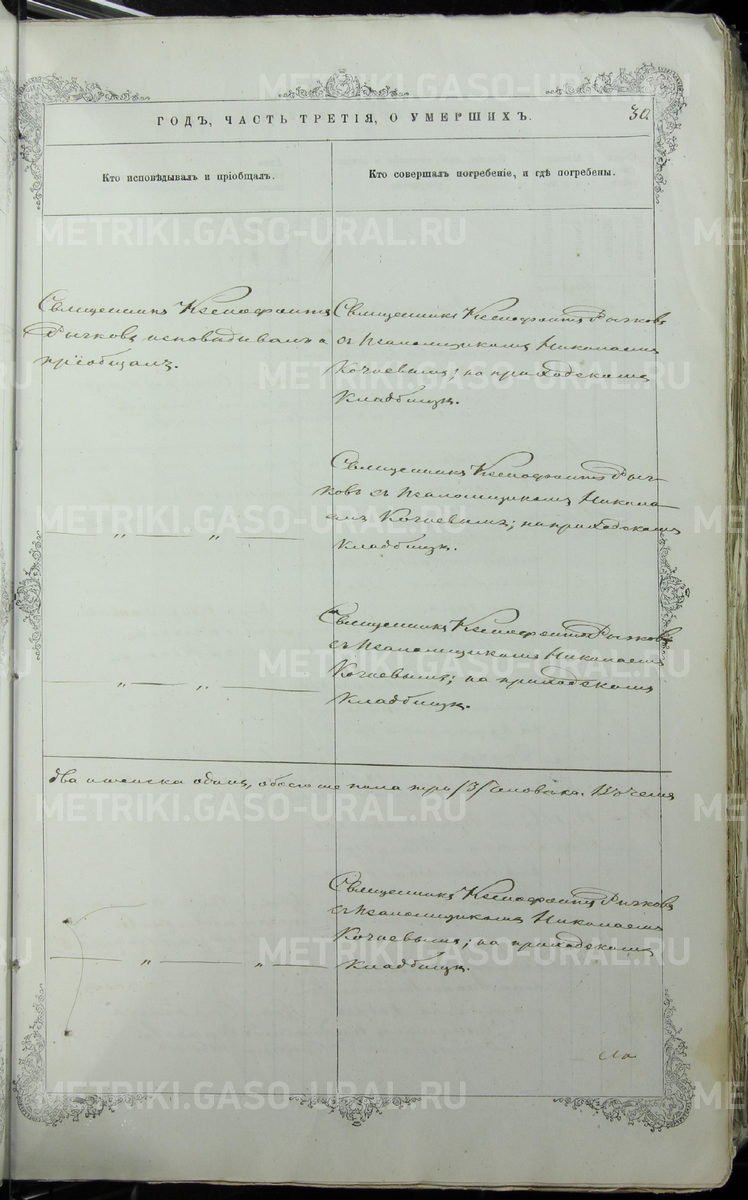 ГОДЪ, ЧАСТЬ ТРЕТІЯ, О УМЕРШИХЪ.
30
Кто исповѣдывалъ и пріобщалъ.
Кто совершалъ погребеніе, и гдѣ погребены.
Священникъ Ксенофонтъ
Рычковъ исповѣдывалъ и
пріобщалъ.
Священникъ Ксенофонтъ Рычковъ
съ псаломщикомъ Николаемъ
Кочневымъ; на приходскомъ
кладбищѣ.
Священникъ Ксенофонтъ Рыч-
ковъ съ псаломщикомъ Никола-
емъ Кочневымъ; на приходскомъ
кладбищѣ.
— „ — „ —
Священникъ Ксенофонтъ Рычковъ
съ псаломщикомъ Николаемъ
Кочневымъ; на приходскомъ
кладбищѣ.
— „ — „ —
два и женска одинъ, обоего же пола три /3/ человѣка.
Священникъ Ксенофонтъ Рычковъ
съ псаломщикомъ Николаемъ
Кочневымъ; на приходскомъ
кладбищѣ.
— „ — „ —
METRIKI.GASO-URAL.RU